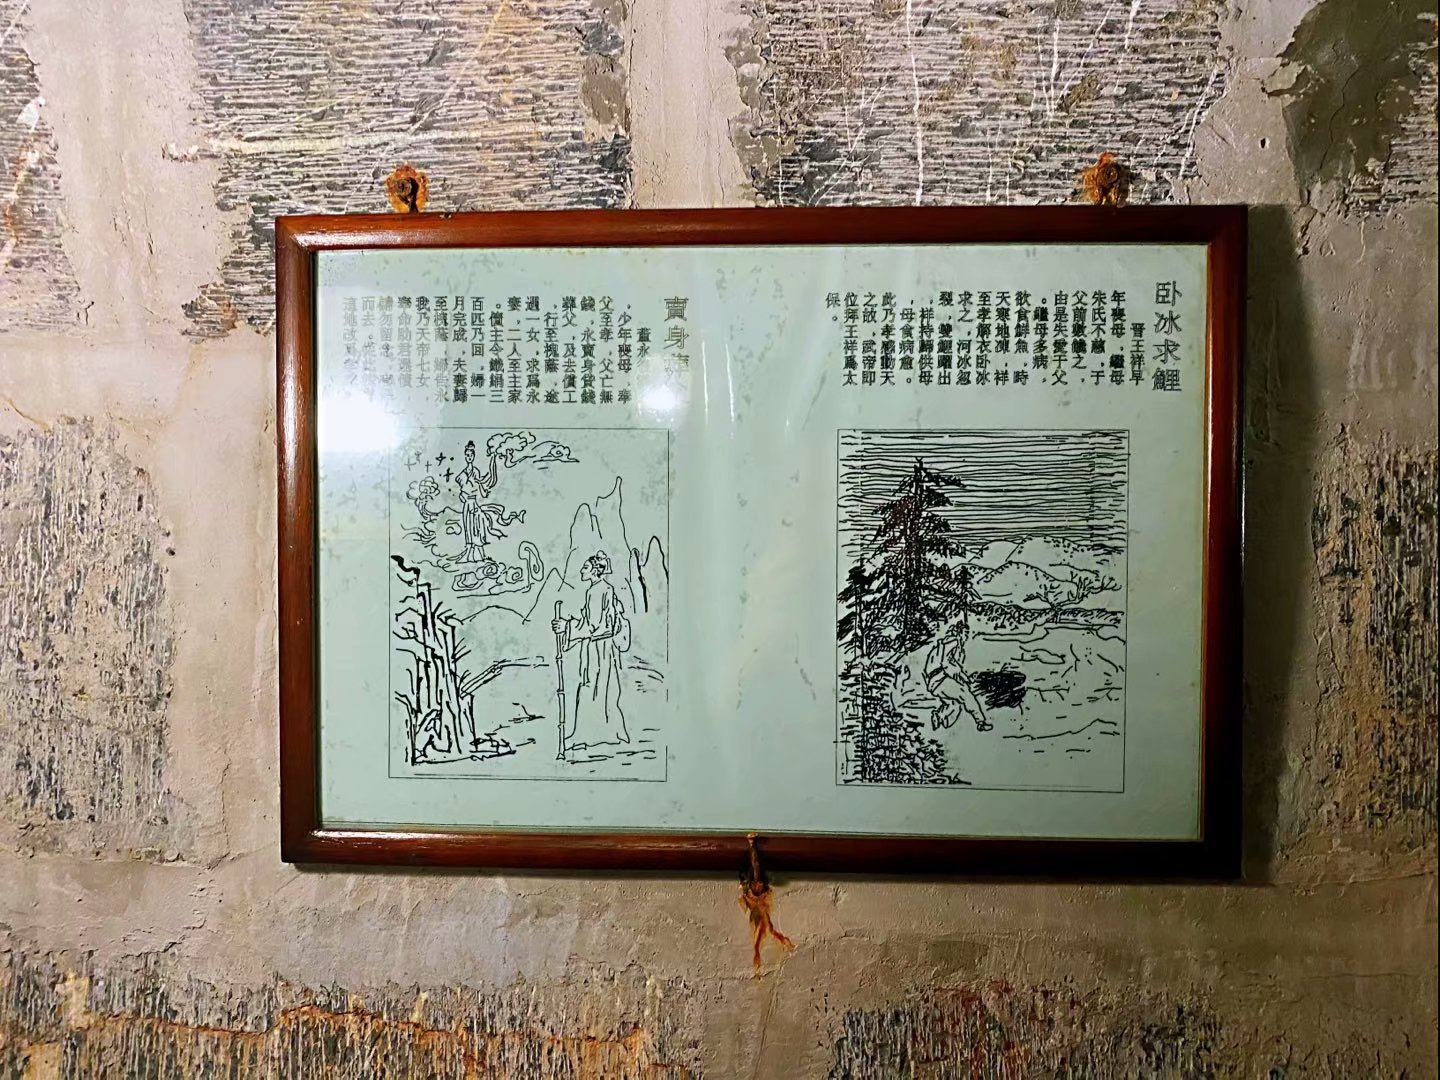 卧冰求鯉
晋王祥早
年喪母，繼母
朱氏不慈，于
父前數譖之，
由是失愛于父
。繼母多病，
欲食鮮魚，時
天寒地凍，祥
至孝解衣卧冰
求之，河冰忽
裂，雙鯉躍出
，祥持歸供母
，母食病愈。
此乃孝感動天
之故，武帝即
位拜王祥爲太
保。
賣身葬父
董永
，少年喪母，奉
父至孝，父亡無
錢，永賣身貸錢
葬父，及去償工
，行至槐蔭，途
遇一女，求爲永
妻，二人至主家
。償主令織絹三
百匹乃回，婦一
月完成，夫妻歸
至槐蔭，婦告永
我乃天帝七女，
奉命助君還債，
請勿留念，
而去。